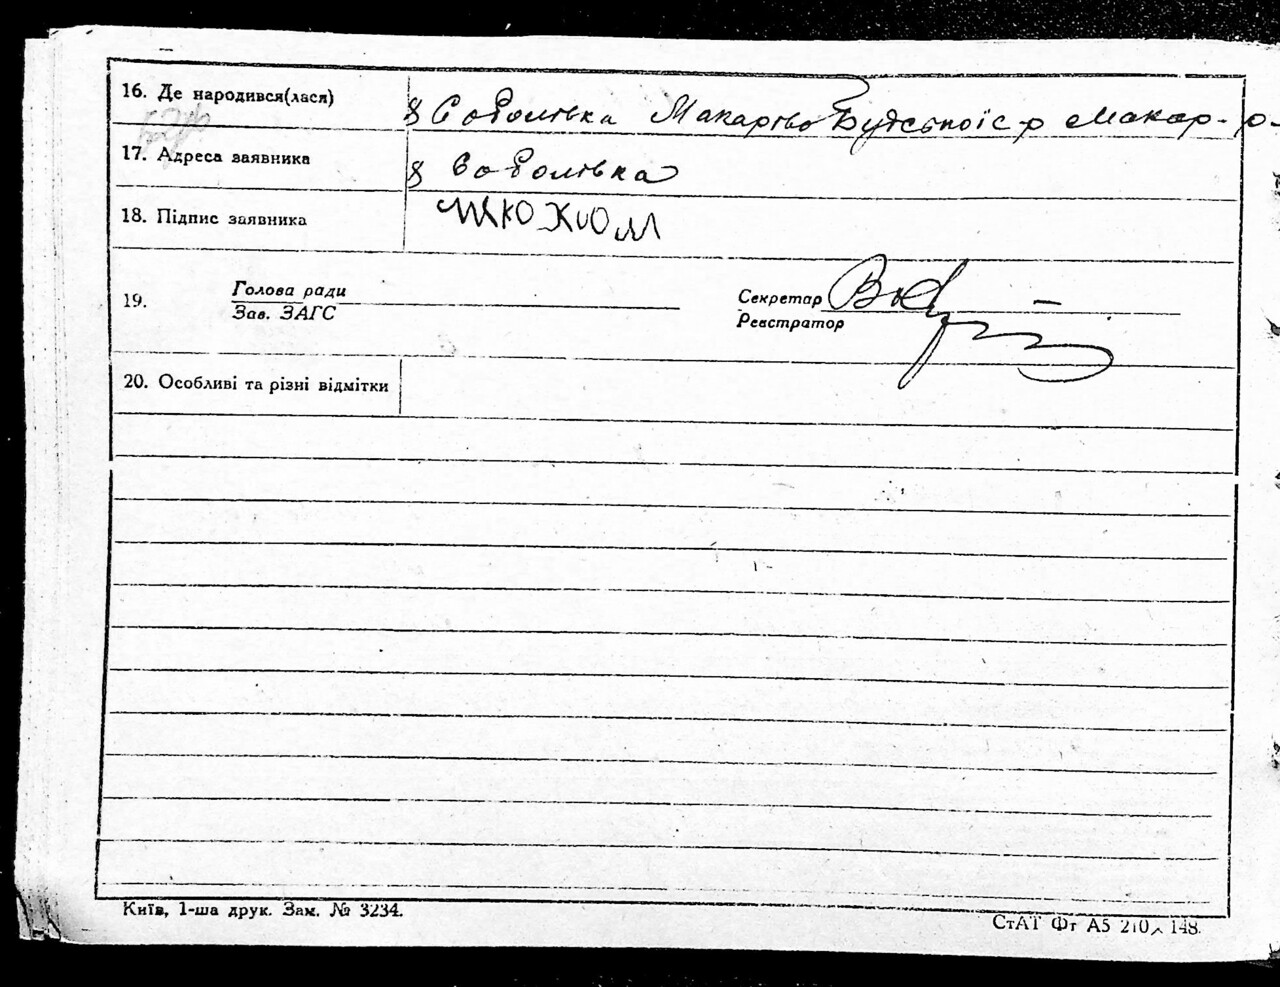 16. Де народився(лася) с Соболівка Макарово Будської с р Макар. р-
17. Адреса заявника с Соболівка
18. Підпис заявника
19. Голова ради Секретар
Зав. ЗАГС Реєстратор
20. Особливі та різні відмітки
Київ, 1-ша друк. Зам. № 3234.
СтАТ Фт А5 210 x 148.